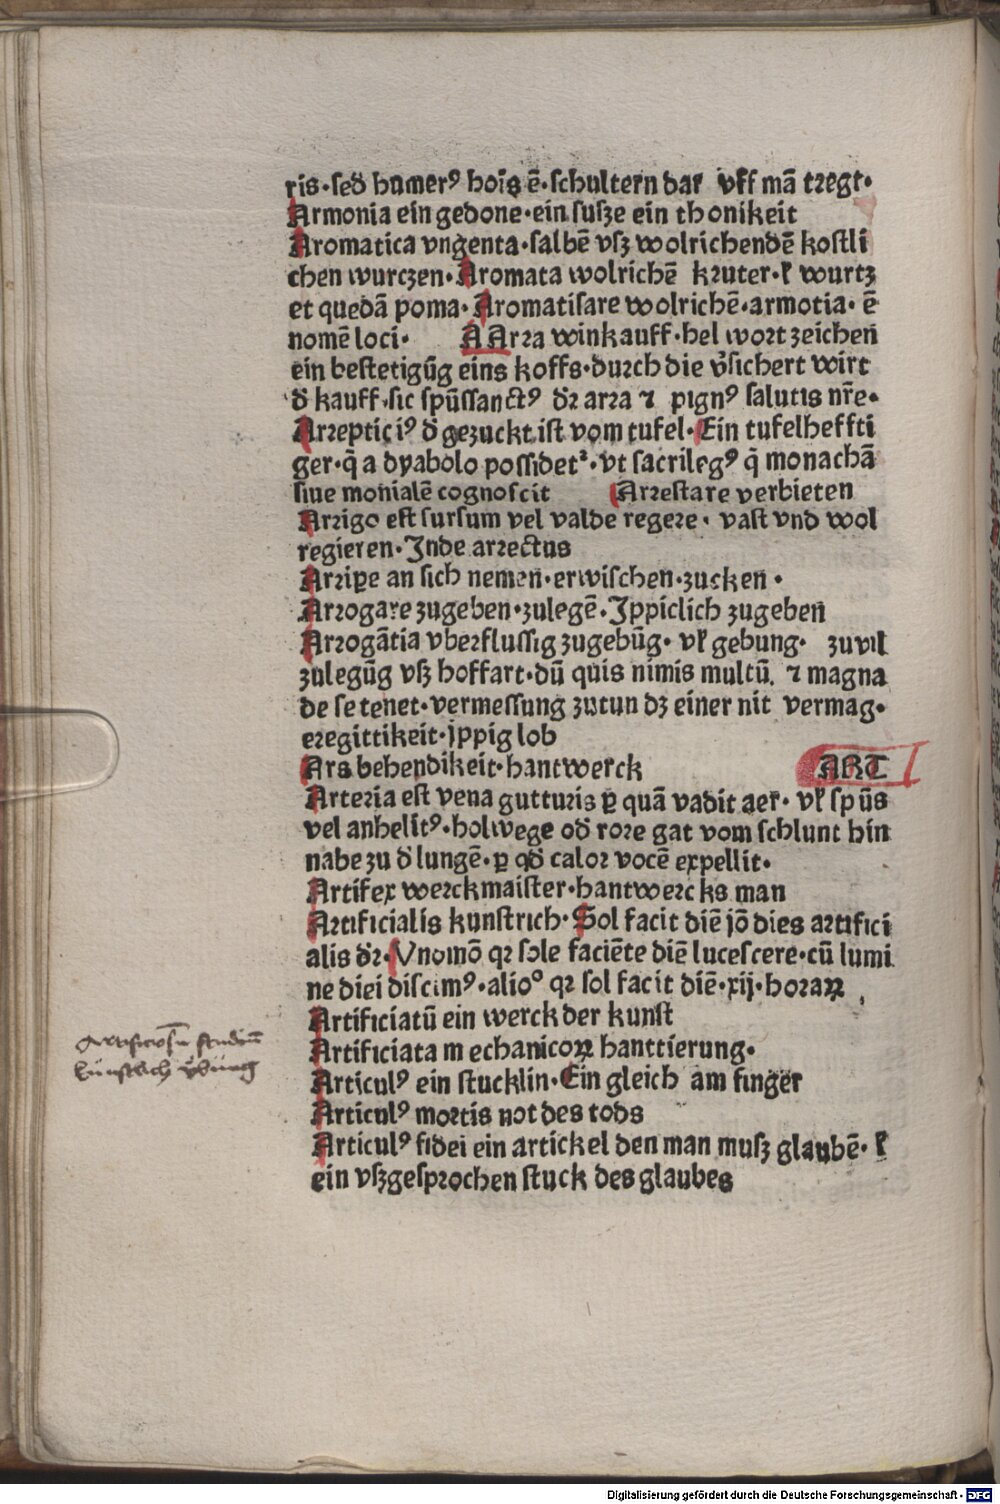 ris·sed humerꝰ hoīs ē·schultern dar vff mā tregt·
Armonia ein gedone·ein susze ein thonikeit
Aromatica vngenta·salbē vsz wolrichendē kostli
chen wurczen·Aromata wolrichē kruter·ł wurtz
et quedā poma·Aromatisare wolrichē·armotia·ē
nomē loci· A Arra winkauff·hel wortzeichen
ein bestetigūg eins koffs·durch die v̓sichert wirt
d̓ kauff·sic spūssanctꝰ dr̄ arra ⁊ pignꝰ salutis nr̄e·
Arrepticiꝰ d̓ gezuckt ist vom tufel·Ein tufelheffti
ger·q̄ a dyabolo possidetᷣ·vt sacrilegꝰ q̄ monachā
siue monialē cognoscit Arrestare verbieten
Arrigo est sursum vel valde regere·vast vnd wol
regieren·Inde arrectus
Arriꝑe an sich nemen·erwischen·zucken·
Arrogare zugeben·zulegē·Jppiclich zugeben
Arrogātia vberflussig zugebūg·vł gebung· zuvil
zulegūg vsz hoffart·dū quis nimis multū. ⁊ magna
de se tenet·vermessung zutun dz einer nit vermag·
eregittikeit·jppig lob
Ars behendikeit·hantwerck ART
Arteria est vena gutturis ꝑ quā vadit aer·vł spūs
vel anhelitꝰ·holwege od̓ rore gat vom schlunt hin
nabe zu d̓ lungē·ꝑ qd̓ calor vocē expellit·
Artifex werckmaister·hantwercks man
Artificialis kunstrich·Sol facit diē jō dies artifici
alis dr̄·Vnomō qr sole faciēte diē lucescere·cū lumi
ne diei discimꝰ·alioº qr sol facit diē·xij·horaꝝ
Artificiatū ein werck der kunst
Artificiata mechanicoꝝ hanttierung·
Articulꝰ ein stucklin·Ein gleich am finger
Articulꝰ mortis not des tods
Articulꝰ fidei ein artickel den man musz glaubē·ł
ein vszgesprochen stuck des glaubes
künstlich vbung
Digitalisierung gefördert durch die Deutsche Forschungsgemeinschaft - DFG